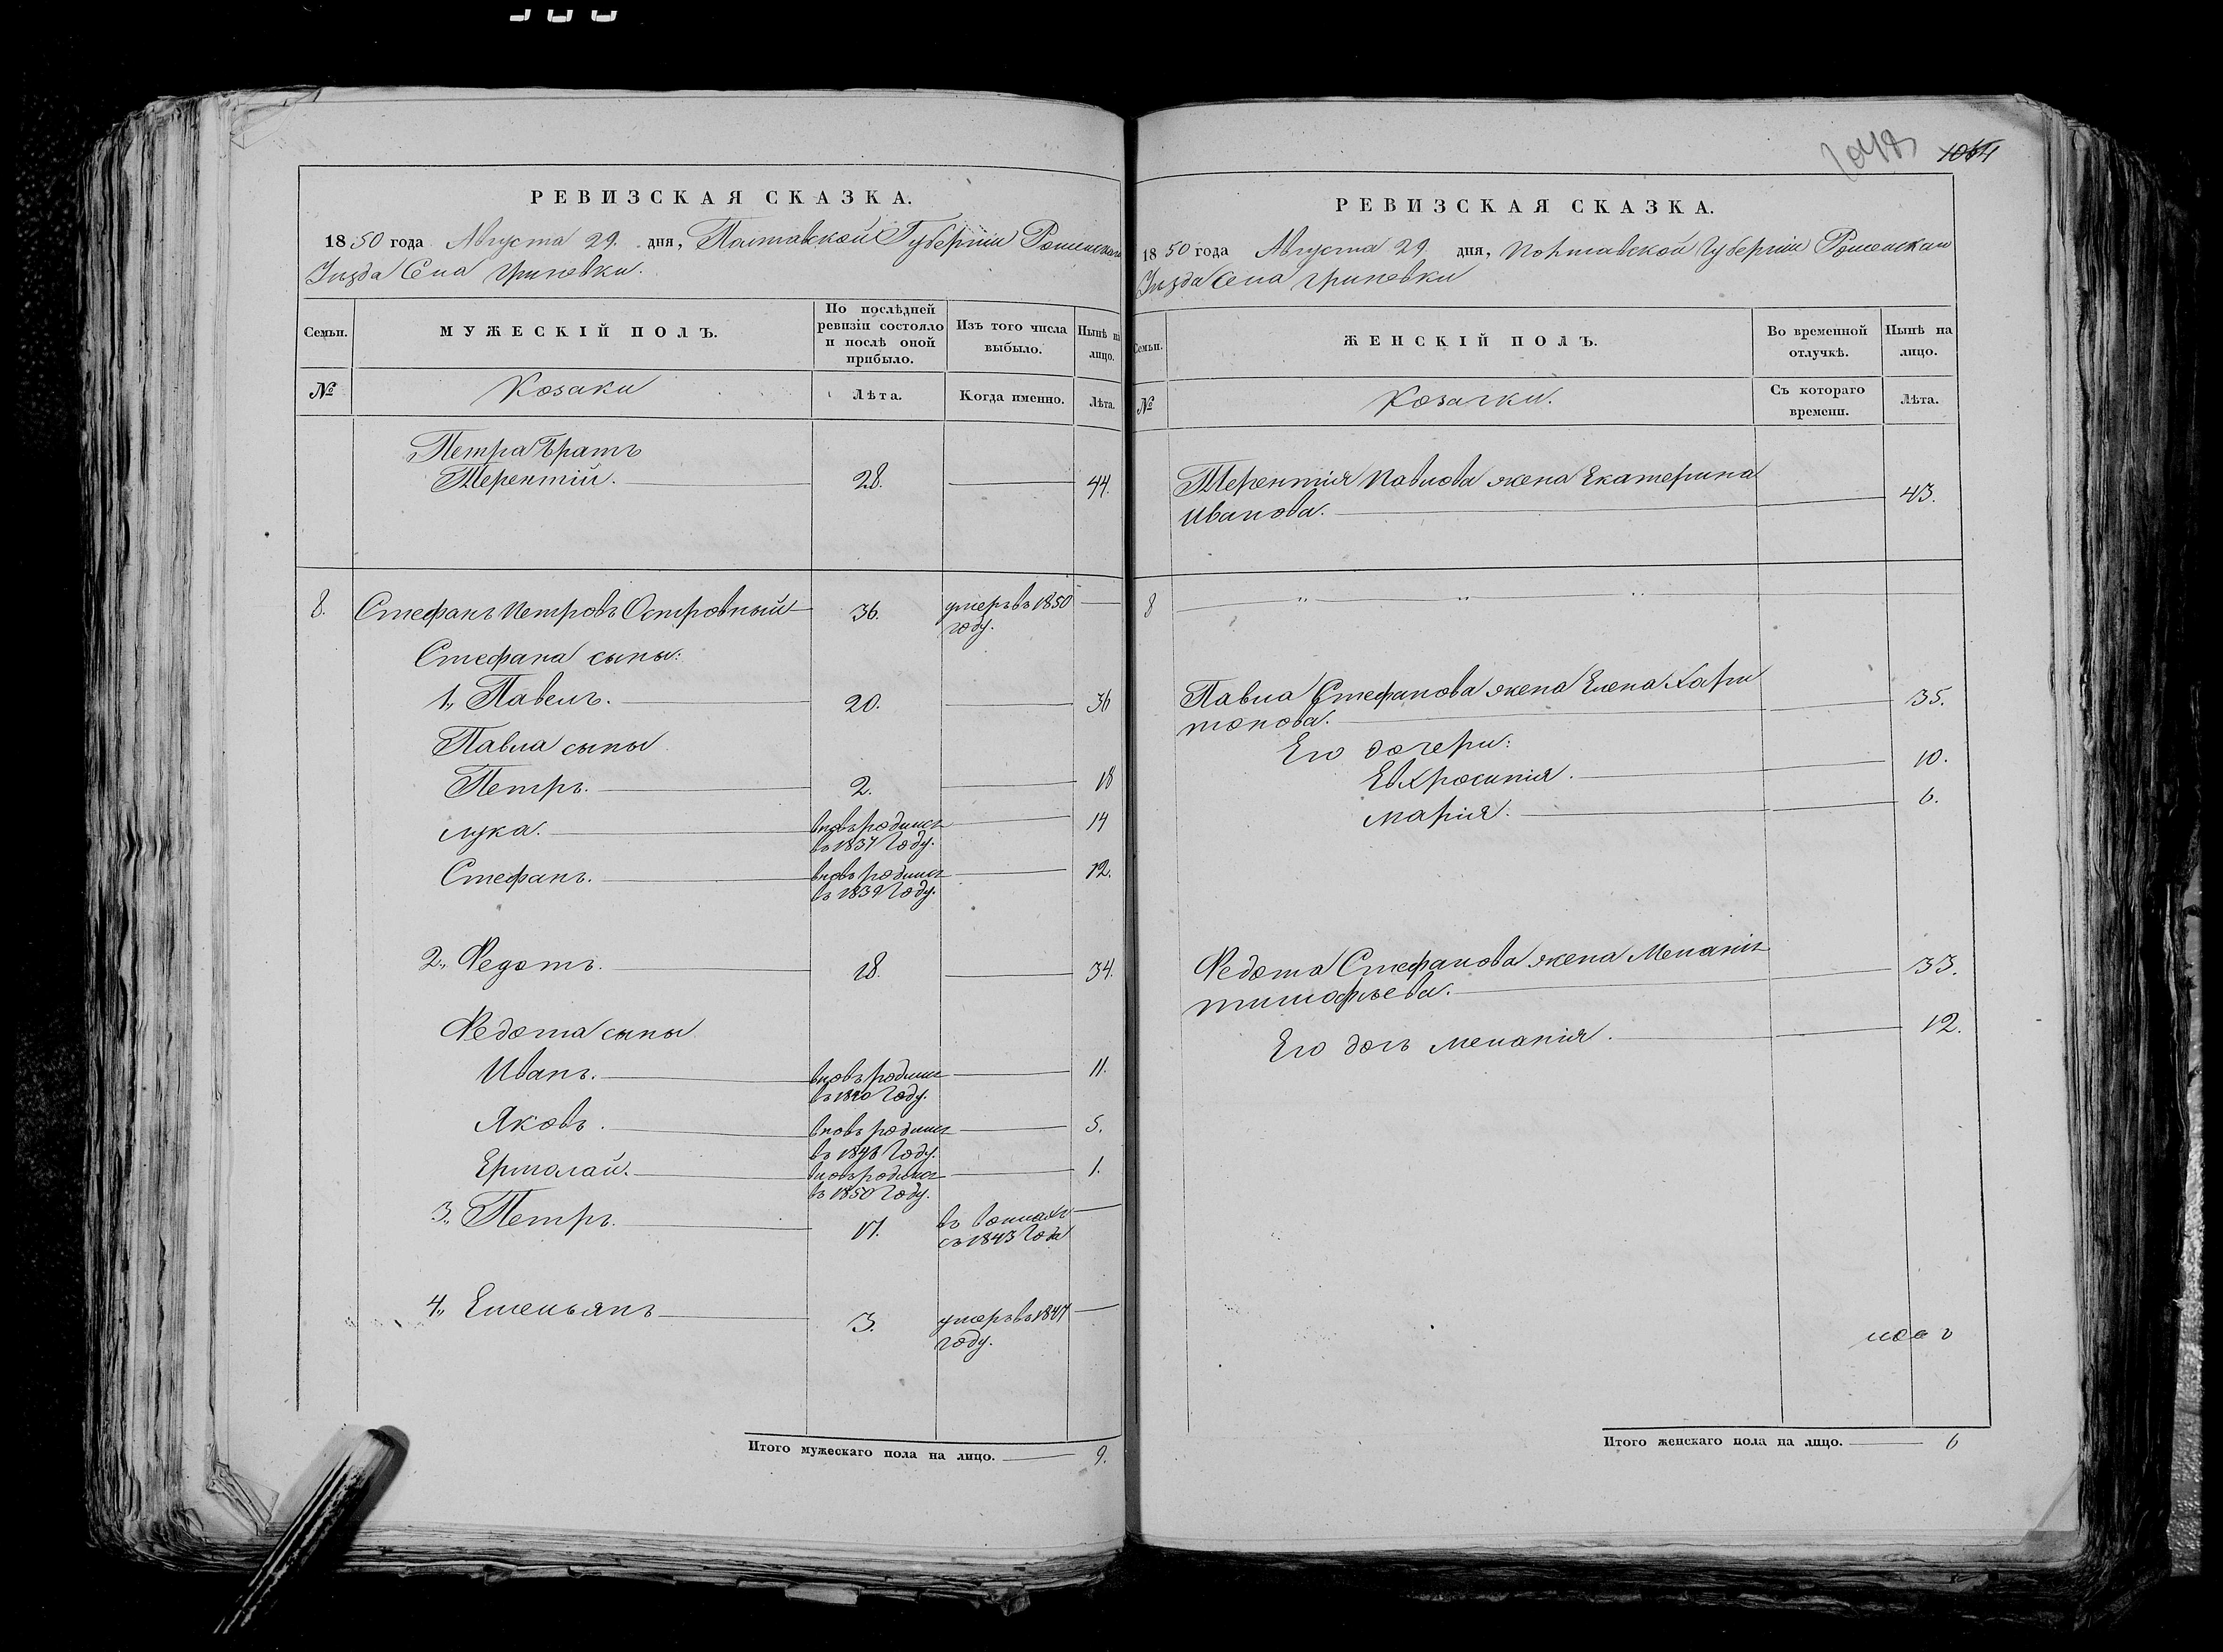 РЕВИЗСКАЯ СКАЗКА.
1850 года Августа 29. дня, Полтавской Губернии Роменскаго
Уѣзда Села Гриневки.
Семьи.
МУЖЕСКІЙ ПОЛЪ.
По послѣдней
ревизіи состояло
и послѣ оной
прибыло.
Изъ того числа
выбыло.
Нынѣ на
лицо.
№
Козаки
Лѣта.
Когда именно.
Лѣта.
Петра братъ
Терентій. 28. 44.
8. Стефанъ Петровъ Островный 36. умеръ въ 1850
году.
Стефана сыны:
1„ Павелъ. 20. 36
Павла сыны
Петръ. 2. 18
Лука. вновь родился 14
въ 1837 году.
Стефанъ. вновь родился 12.
въ 1839 году.
2„ Федотъ. 18. 34.
Федота сыны
Иванъ. вновь родился 11.
въ 1840 году.
Яковъ. вновь родился 5.
въ году.
Ермолай. вновь родился 1.
въ 1850 году.
3„ Петръ. 17. въ
съ 1843 года
4„ Емельянъ 3. умеръ въ 1847
году.
Итого мужескаго пола на лицо. 9.
1064
РЕВИЗСКАЯ СКАЗКА.
1850 года Августа 29 дня, Полтавской Губерніи Роменскаго
Уѣзда Села Гриневки
Семьи.
ЖЕНСКІЙ ПОЛЪ.
Во временной
отлучкѣ.
Нынѣ на
лицо.
№
Козачки.
Съ котораго
времени.
Лѣта.
Терентія Павлова жена Екатерина
Иванова. 43.
8 „ „ „
Павла Стефанова жена Елена Хари
тонова. 35.
Его дочери:
Евхросинія. 10.
Марія. 6.
Федота Стефанова жена Меланія
Тимофѣева. 33.
Его дочь Меланія. 12.
Итого женскаго пола на лицо. 6